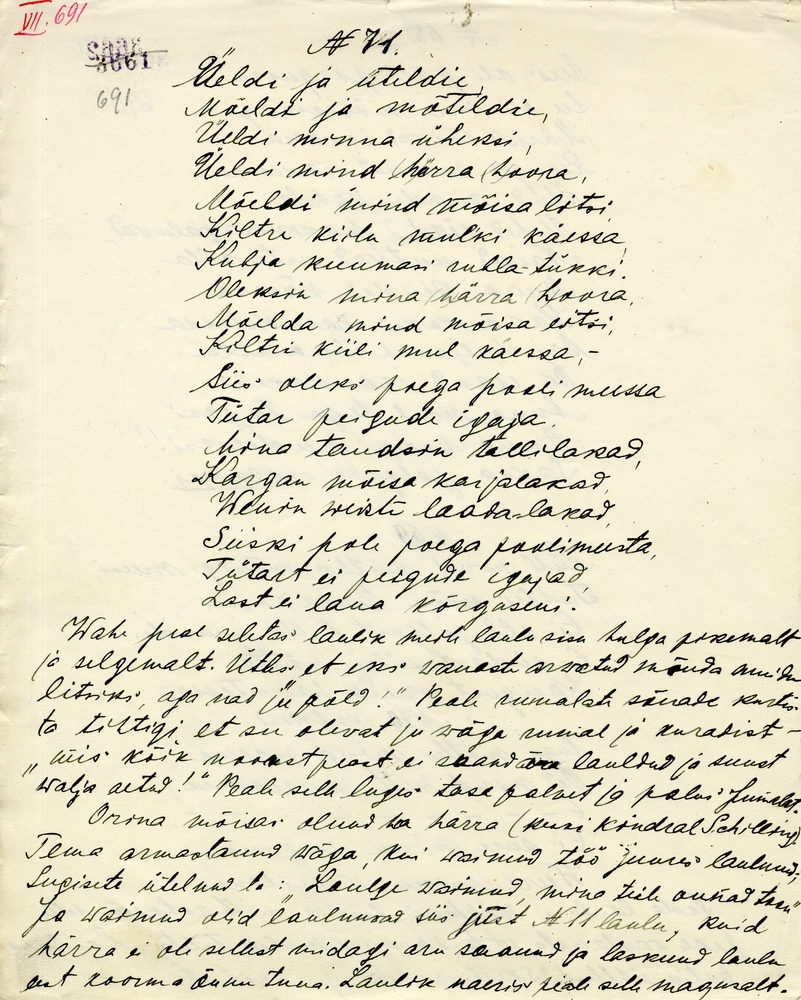 VII. 691
3061
691
№ 71.
Üeldi ja üteldie,
Mõeldi ja mõteldie,
Üeldi minna üheksi,
Üeldi mind härra hoora,
Mõeldi mind mõisa litsi,
Kiltre kiilu mulki käessa,
Kubja kuumasi rubla-tükki.
Oleksin mina härra hoora,
Mõelda mind mõisa litsi,
Kiltri kiili mul käessa,-
Siis oleks poega pooli mussa
Tütar peigude igaja.
Mina tandsin tallilakad,
Kargan mõisa karjalakad,
Wenin weiste laada-lakad,
Siiski pole poega poolimusta,
Tütart ei peigude igajad,
Last ei laua kõrguseni.
Wahe peal seletas laulik meile laulu sisu hulga pikemalt
ja selgemalt. Ütles et eks wanaste arwatud mõnda muidu
litsiks, aga nad ju põld!" Peale rumalate sõnade
ta tihtigi, et see olevat ju wäga rumal ja kuradist –
„mis kõik noorest peast ei saand lauldud ja suust
walja aetud!" Peale selle luges tasa palvet ja palus Jumalat.
Orina mõisas olnud ka härra (keski kindral Schilling)
Tema armastanud wäga, kui waimud töö juures laulnud,
Sugisete ütelnud ta: „Laulge waimud, mina teile õunad toon"
Ja waimud olid laulnuwad siis just № 11 laulu, kuid
härra ei ole sellest midagi aru saanud ja lasknud laulu
eest koorma õunu tuua. Laulik naeris peale selle magusalt.